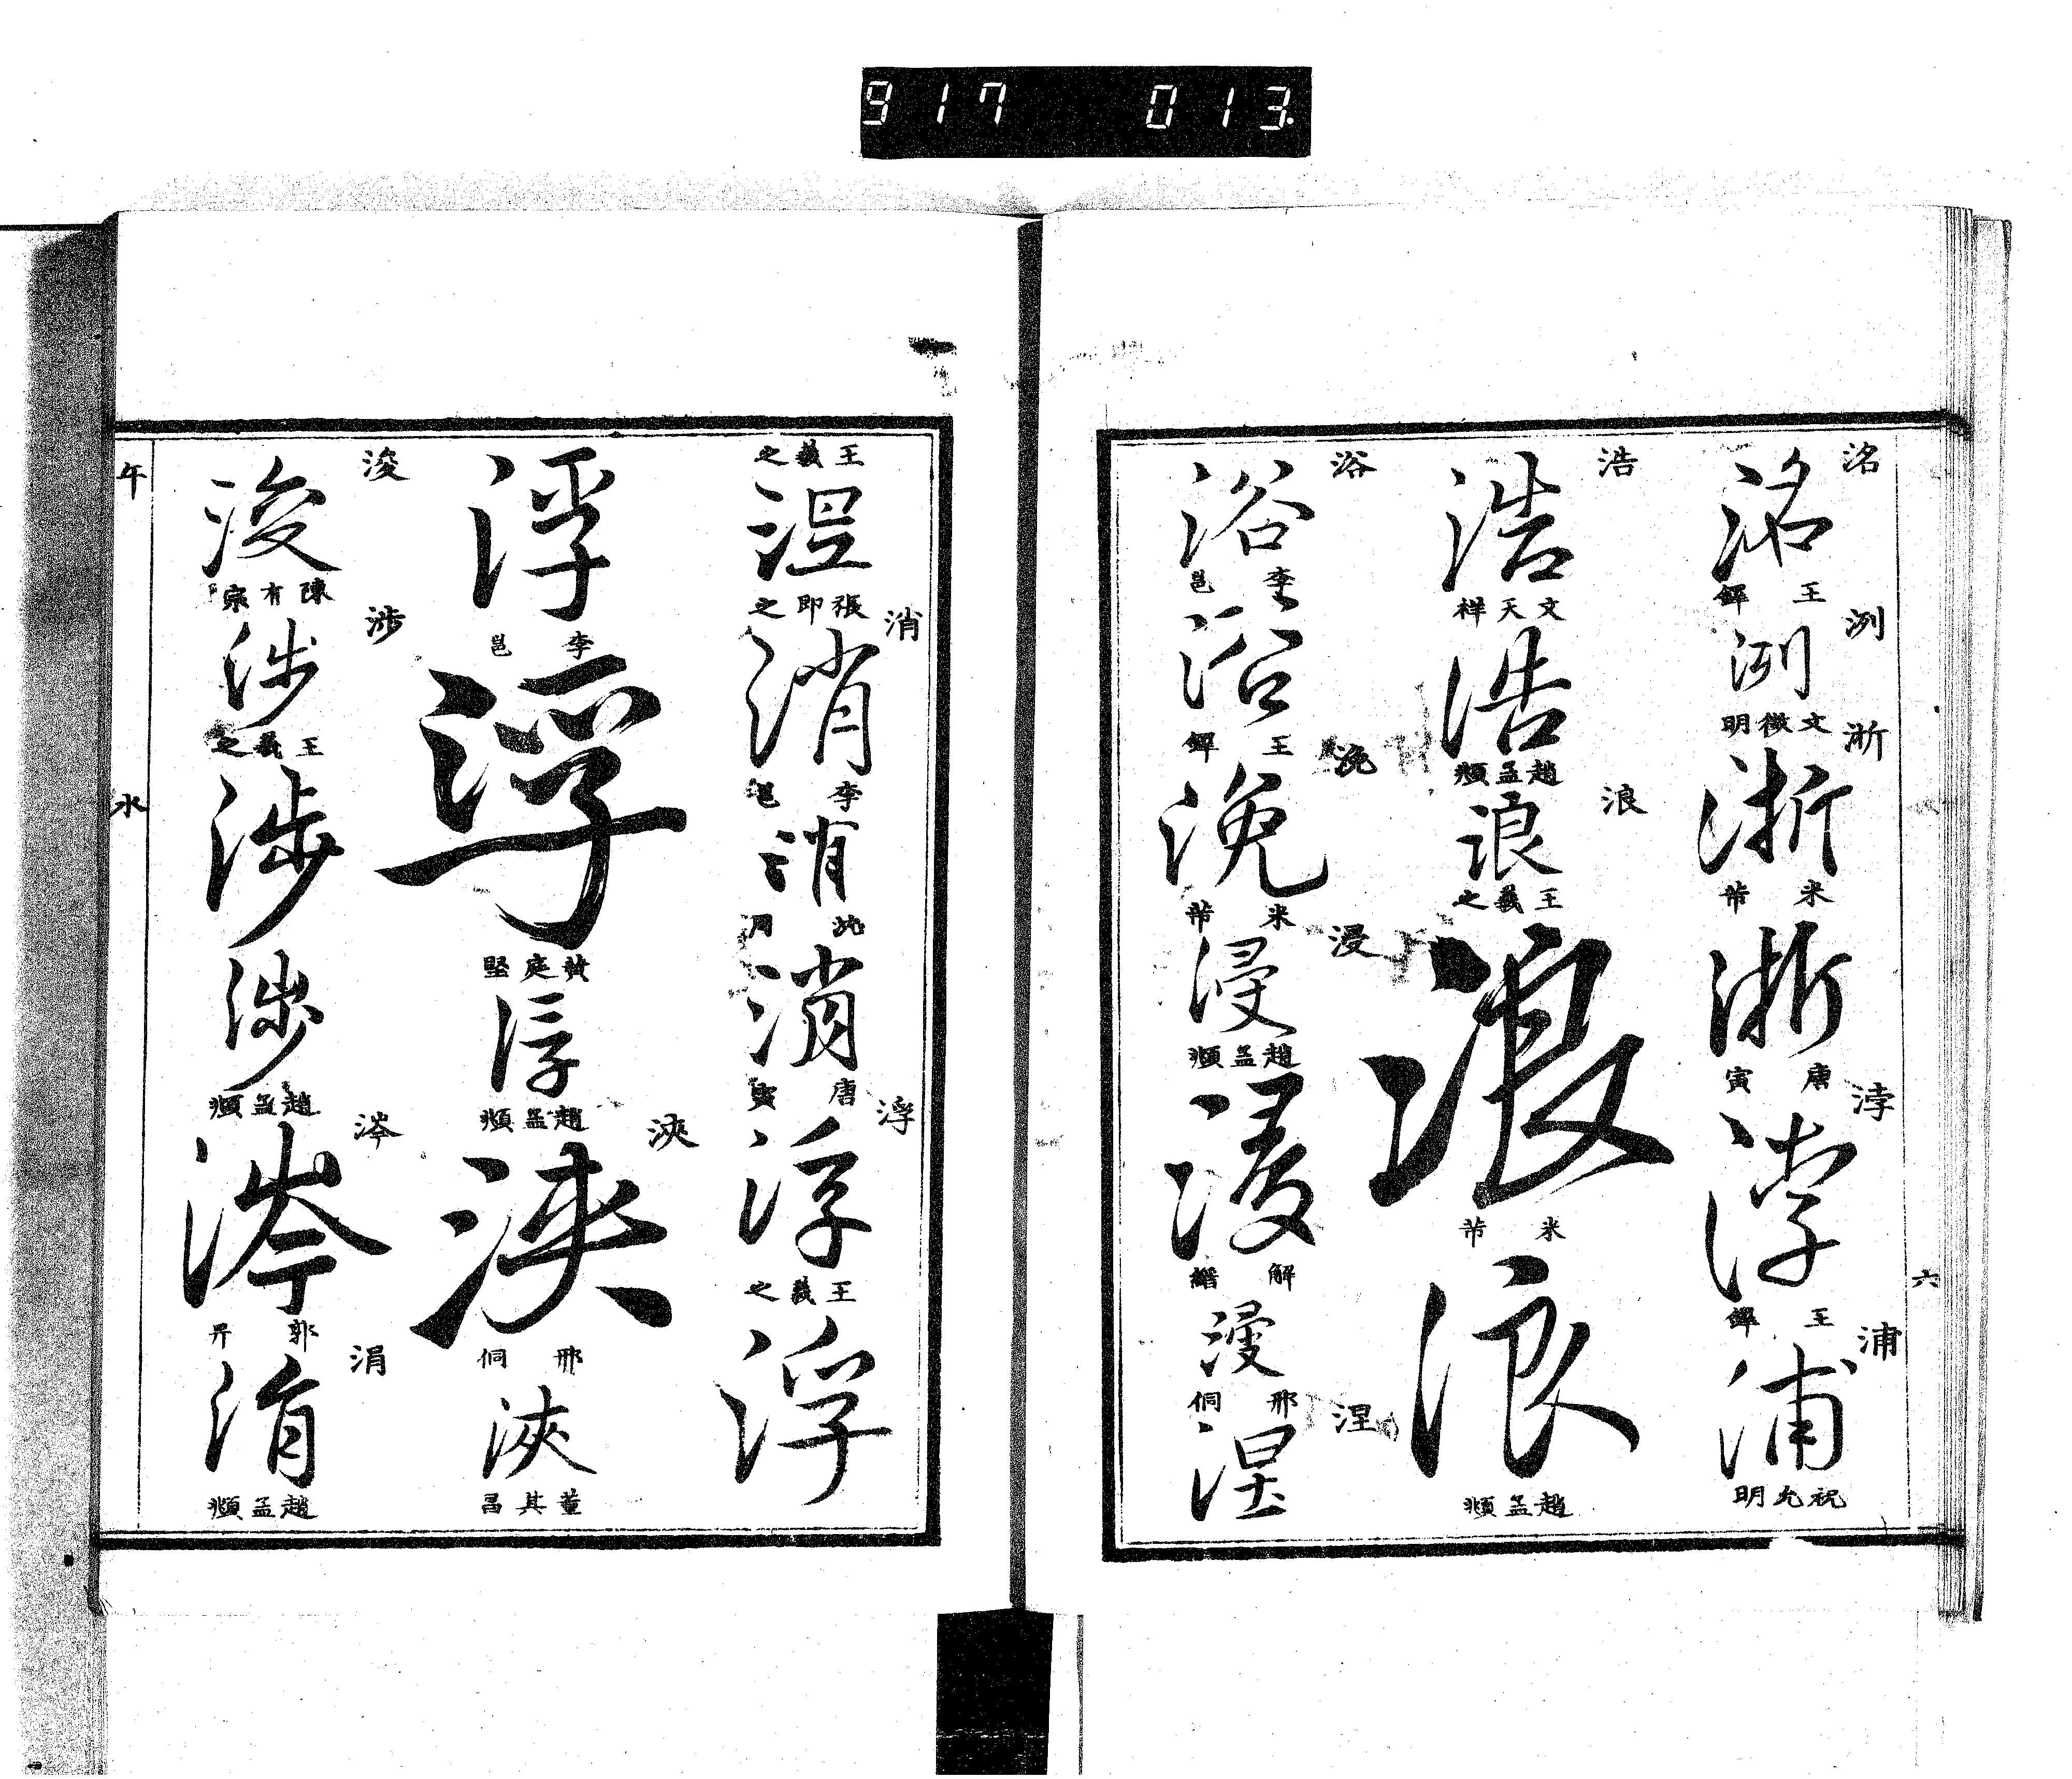 917 013
六
洺
洺
王鐸
洌
洌
文徵明
浙
浙
米芾
浙
唐寅
浡
浡
王鐸
浦
浦
祝允明
浩
浩
文天祥
浩
趙孟頫
浪
浪
王羲之
浪
米芾
浪
趙孟頫
浴
浴
李邕
浴
王鐸
浼
浼
米芾
浸
浸
趙孟頫
浸
解縉
浸
邢侗
涅
涅
王羲之
涅
張即之
消
消
李邕
消
消
唐寅
浮
浮
王羲之
浮
浮
李邕
浮
黃庭堅
浮
趙孟頫
浹
浹
邢侗
浹
董其昌
浚
浚
陳有宗
涉
涉
王羲之
涉
涉
趙孟頫
涔
涔
郭畀
涓
涓
趙孟頫
午
水